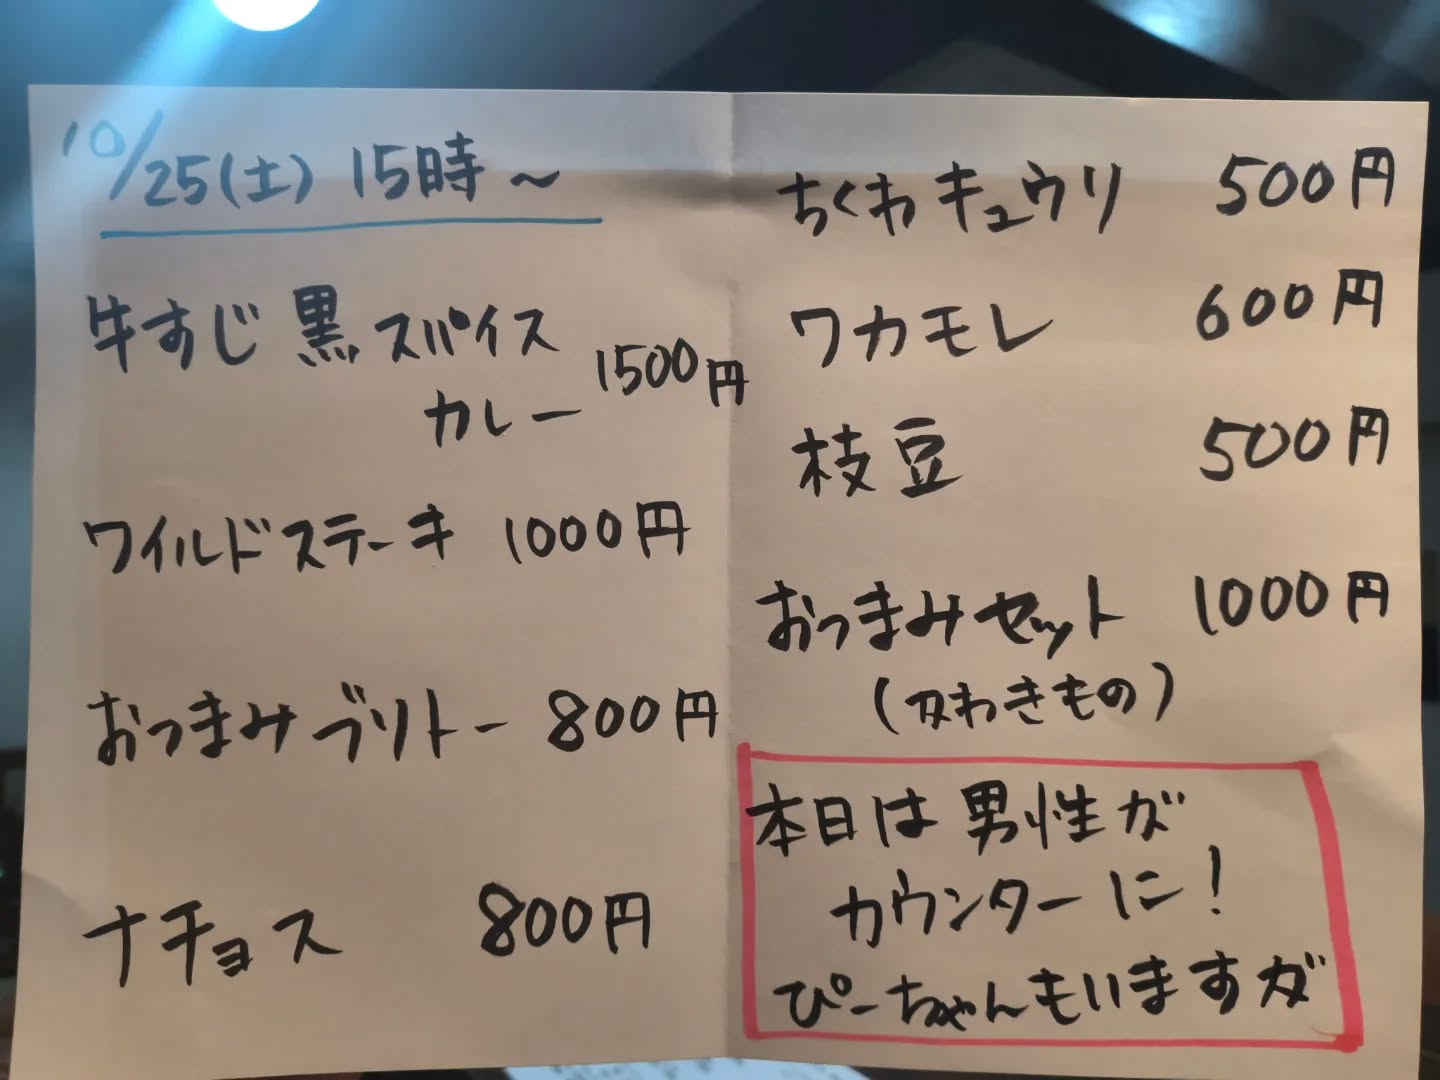 10/25(土) 15時～
牛すじ黒スパイス
カレー 1500円
ワイルドステーキ 1000円
おつまみブリトー 800円
ナチョス 800円
ちくわキュウリ 500円
ワカモレ 600円
枝豆 500円
おつまみセット 1000円
(かわきもの)
本日は男性が
カウンターに!
ぴーちゃんもいますが